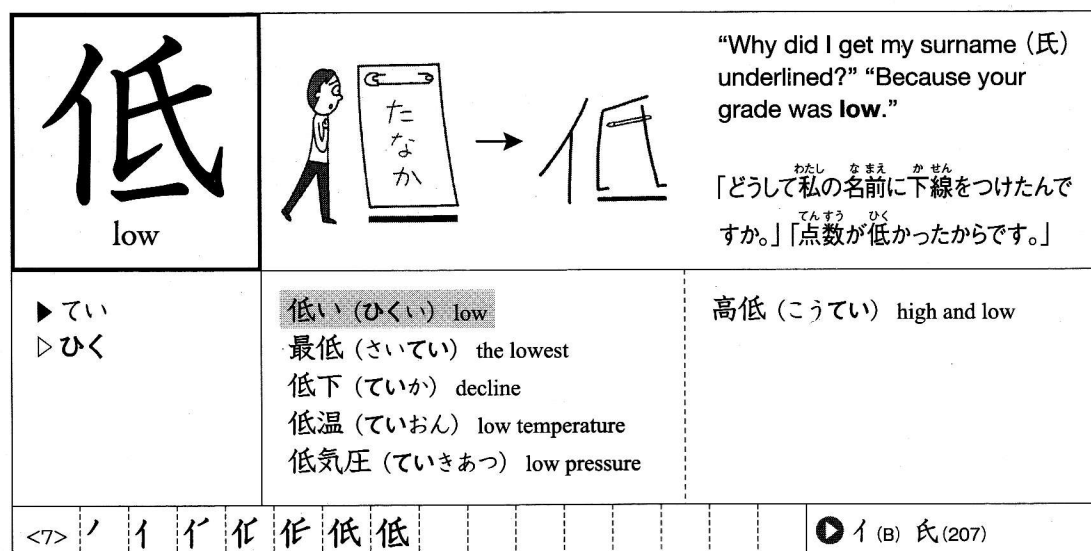 低
low
たなか
"Why did I get my surname (氏)
underlined?" "Because your
grade was low."
「どうして私の名前に下線をつけたんで
わたし なまえ かせん
すか。」「点数が低かったからです。」
てんすう ひく
▶ てい
▷ ひく
低い (ひくい) low
最低 (さいてい) the lowest
低下 (ていか) decline
低温 (ていおん) low temperature
低気圧 (ていきあつ) low pressure
高低 (こうてい) high and low
<7>
低
イ (B) 氏 (207)